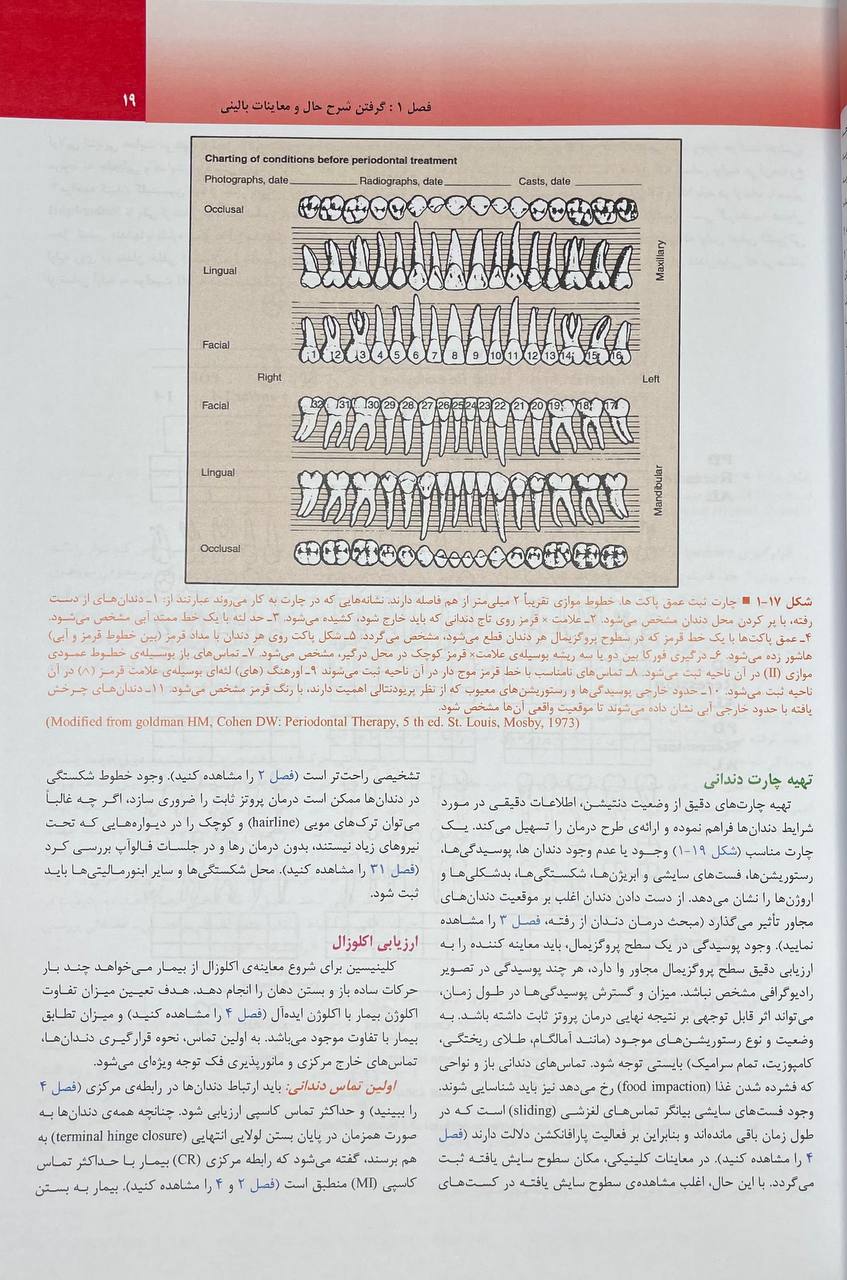 ۱۹
فصل ۱ : گرفتن شرح حال و معاینات بالینی
Charting of conditions before periodontal treatment
Photographs, date Radiographs, date Casts, date
Occlusal
Lingual
Maxillary
Facial
1 2 3 4 5 6 7 8 9 10 11 12 13 14 15 16
Right Left
Facial
32 31 30 29 28 27 26 25 24 23 22 21 20 19 18 17
Lingual
Mandibular
Occlusal
شکل ۱۷-۱ ■ چارت ثبت عمق پاکت ها. خطوط موازی تقریباً ۲ میلی‌متر از هم فاصله دارند. نشانه‌هایی که در چارت به کار می‌روند عبارتند از: ۱ـ دندان‌های از دست
رفته، با پر کردن محل دندان مشخص می‌شود. ۲ـ علامت × قرمز روی تاج دندانی که باید خارج شود، کشیده می‌شود. ۳ـ حد لثه با یک خط ممتد آبی مشخص می‌شود.
۴ـ عمق پاکت‌ها با یک خط قرمز که در سطوح پروگزیمال هر دندان قطع می‌شود، مشخص می‌گردد. ۵ـ شکل پاکت روی هر دندان با مداد قرمز (بین خطوط قرمز و آبی)
هاشور زده می‌شود. ۶ـ درگیری فورکا بین دو یا سه ریشه بوسیله‌ی علامت× قرمز کوچک در محل درگیر، مشخص می‌شود. ۷ـ تماس‌های باز بوسیله‌ی خطوط عمودی
موازی (II) در آن ناحیه ثبت می‌شود. ۸ـ تماس‌های نامناسب با خط قرمز موج دار در آن ناحیه ثبت می‌شوند ۹ـ اورهنگ (های) لثه‌ای بوسیله‌ی علامت قرمز (۸) در آن
ناحیه ثبت می‌شود. ۱۰ـ حدود خارجی پوسیدگی‌ها و رستوریشن‌های معیوب که از نظر پریودنتالی اهمیت دارند، با رنگ قرمز مشخص می‌شود. ۱۱ـ دندان‌های چرخش
یافته با حدود خارجی آبی نشان داده می‌شوند تا موقعیت واقعی آن‌ها مشخص شود.
(Modified from goldman HM, Cohen DW: Periodontal Therapy, 5 th ed. St. Louis, Mosby, 1973)
تهیه چارت دندانی
تهیه چارت‌های دقیق از وضعیت دنتیشن، اطلاعات دقیقی در مورد
شرایط دندان‌ها فراهم نموده و ارائه‌ی طرح درمان را تسهیل می‌کند. یک
چارت مناسب (شکل ۱۹-۱) وجود یا عدم وجود دندان ها، پوسیدگی‌ها،
رستوریشن‌ها، فست‌های سایشی و ابریژن‌ها، شکستگی‌ها، بدشکلی‌ها و
اروژن‌ها را نشان می‌دهد. از دست دادن دندان اغلب بر موقعیت دندان‌های
مجاور تأثیر می‌گذارد (مبحث درمان دندان از رفته، فصل ۳ را مشاهده
نمایید). وجود پوسیدگی در یک سطح پروگزیمال، باید معاینه کننده را به
ارزیابی دقیق سطح پروگزیمال مجاور وا دارد، هر چند پوسیدگی در تصویر
رادیوگرافی مشخص نباشد. میزان و گسترش پوسیدگی‌ها در طول زمان،
می‌تواند اثر قابل توجهی بر نتیجه نهایی درمان پروتز ثابت داشته باشد. به
وضعیت و نوع رستوریشن‌های موجود (مانند آمالگام، طلای ریختگی،
کامپوزیت، تمام سرامیک) بایستی توجه شود. تماس‌های دندانی باز و نواحی
که فشرده شدن غذا (food impaction) رخ می‌دهد نیز باید شناسایی شوند.
وجود فست‌های سایشی بیانگر تماس‌های لغزشی (sliding) است که در
طول زمان باقی مانده‌اند و بنابراین بر فعالیت پارافانکشن دلالت دارند (فصل
۴ را مشاهده کنید). در معاینات کلینیکی، مکان سطوح سایش یافته ثبت
می‌گردد. با این حال، اغلب مشاهده‌ی سطوح سایش یافته در کست‌های
تشخیصی راحت‌تر است (فصل ۲ را مشاهده کنید). وجود خطوط شکستگی
در دندان‌ها ممکن است درمان پروتز ثابت را ضروری سازد، اگر چه غالباً
می‌توان ترک‌های مویی (hairline) و کوچک را در دیواره‌هایی که تحت
نیروهای زیاد نیستند، بدون درمان رها و در جلسات فالوآپ بررسی کرد
(فصل ۳۱ را مشاهده کنید). محل شکستگی‌ها و سایر ابنورمالیتی‌ها باید
ثبت شود.
ارزیابی اکلوزال
کلینیسین برای شروع معاینه‌ی اکلوزال از بیمار می‌خواهد چند بار
حرکات ساده باز و بستن دهان را انجام دهد. هدف تعیین میزان تفاوت
اکلوژن بیمار با اکلوژن ایده‌آل (فصل ۴ را مشاهده کنید) و میزان تطابق
بیمار با تفاوت موجود می‌باشد. به اولین تماس، نحوه قرارگیری دندان‌ها،
تماس‌های خارج مرکزی و مانورپذیری فک توجه ویژه‌ای می‌شود.
اولین تماس دندانی: باید ارتباط دندان‌ها در رابطه‌ی مرکزی (فصل ۴
را ببینید) و حداکثر تماس کاسپی ارزیابی شود. چنانچه همه‌ی دندان‌ها به
صورت همزمان در پایان بستن لولایی انتهایی (terminal hinge closure) به
هم برسند، گفته می‌شود که رابطه مرکزی (CR) بیمار با حداکثر تماس
کاسپی (MI) منطبق است (فصل ۲ و ۴ را مشاهده کنید). بیمار به بستن